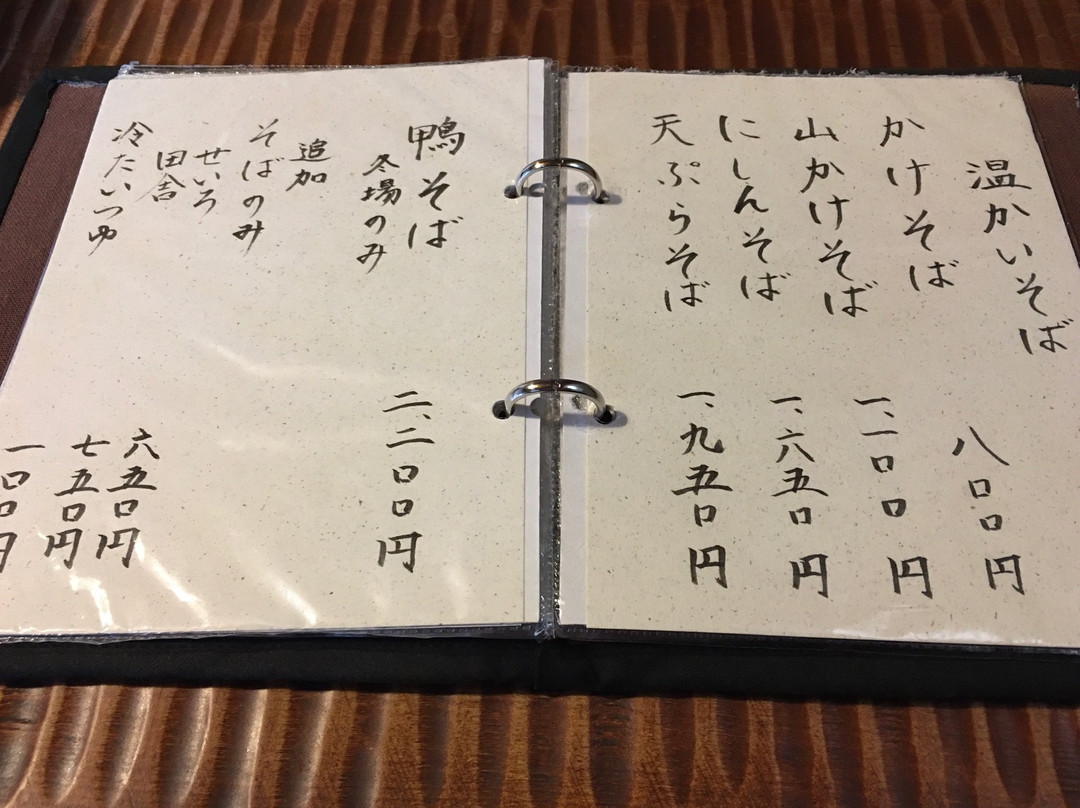 温かいそば
かけそば 八〇〇円
山かけそば 一、一〇〇円
にしんそば 一、六五〇円
天ぷらそば 一、九五〇円
鴨そば 二、二〇〇円
冬場のみ
追加
そばのみ
せいろ 六五〇円
田舎 七五〇円
冷たいつゆ 一〇〇円